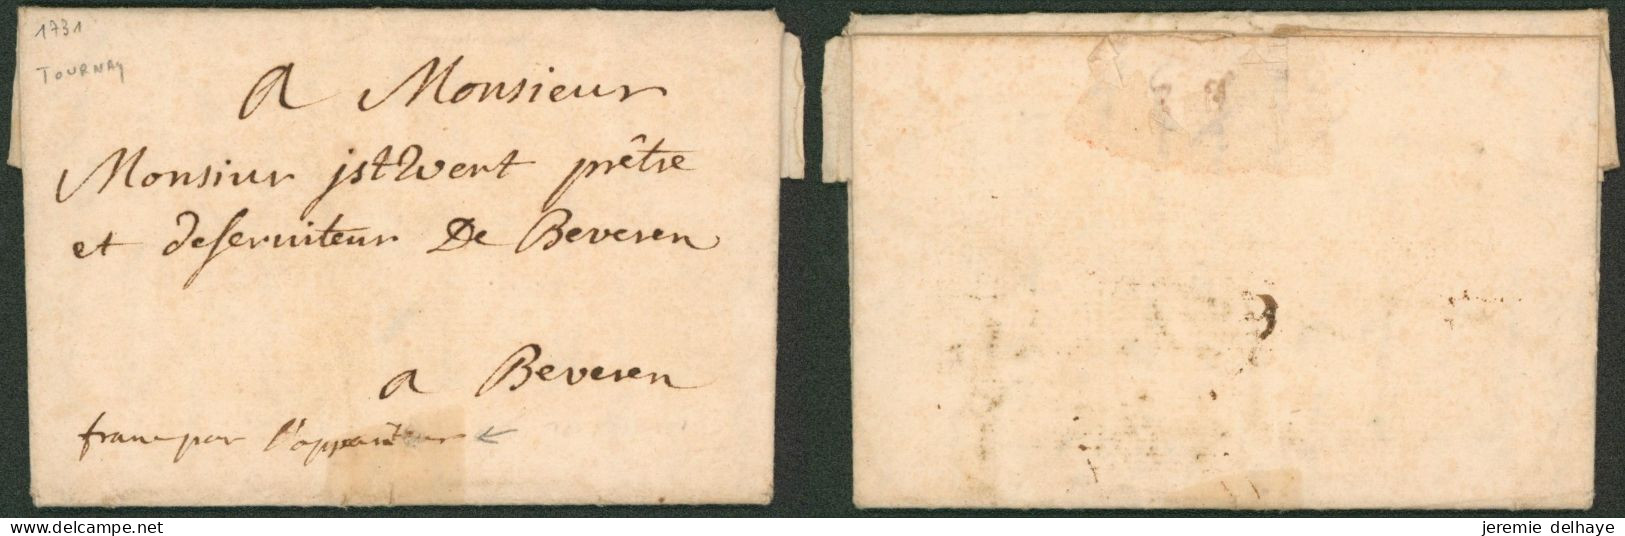 1731
TOURNAY
A Monsieur
Monsiur jst Wert prêtre
et deserviteur De Beveren
a Beveren
franc par l'appariteur
delcampe.net
jeremie delhaye